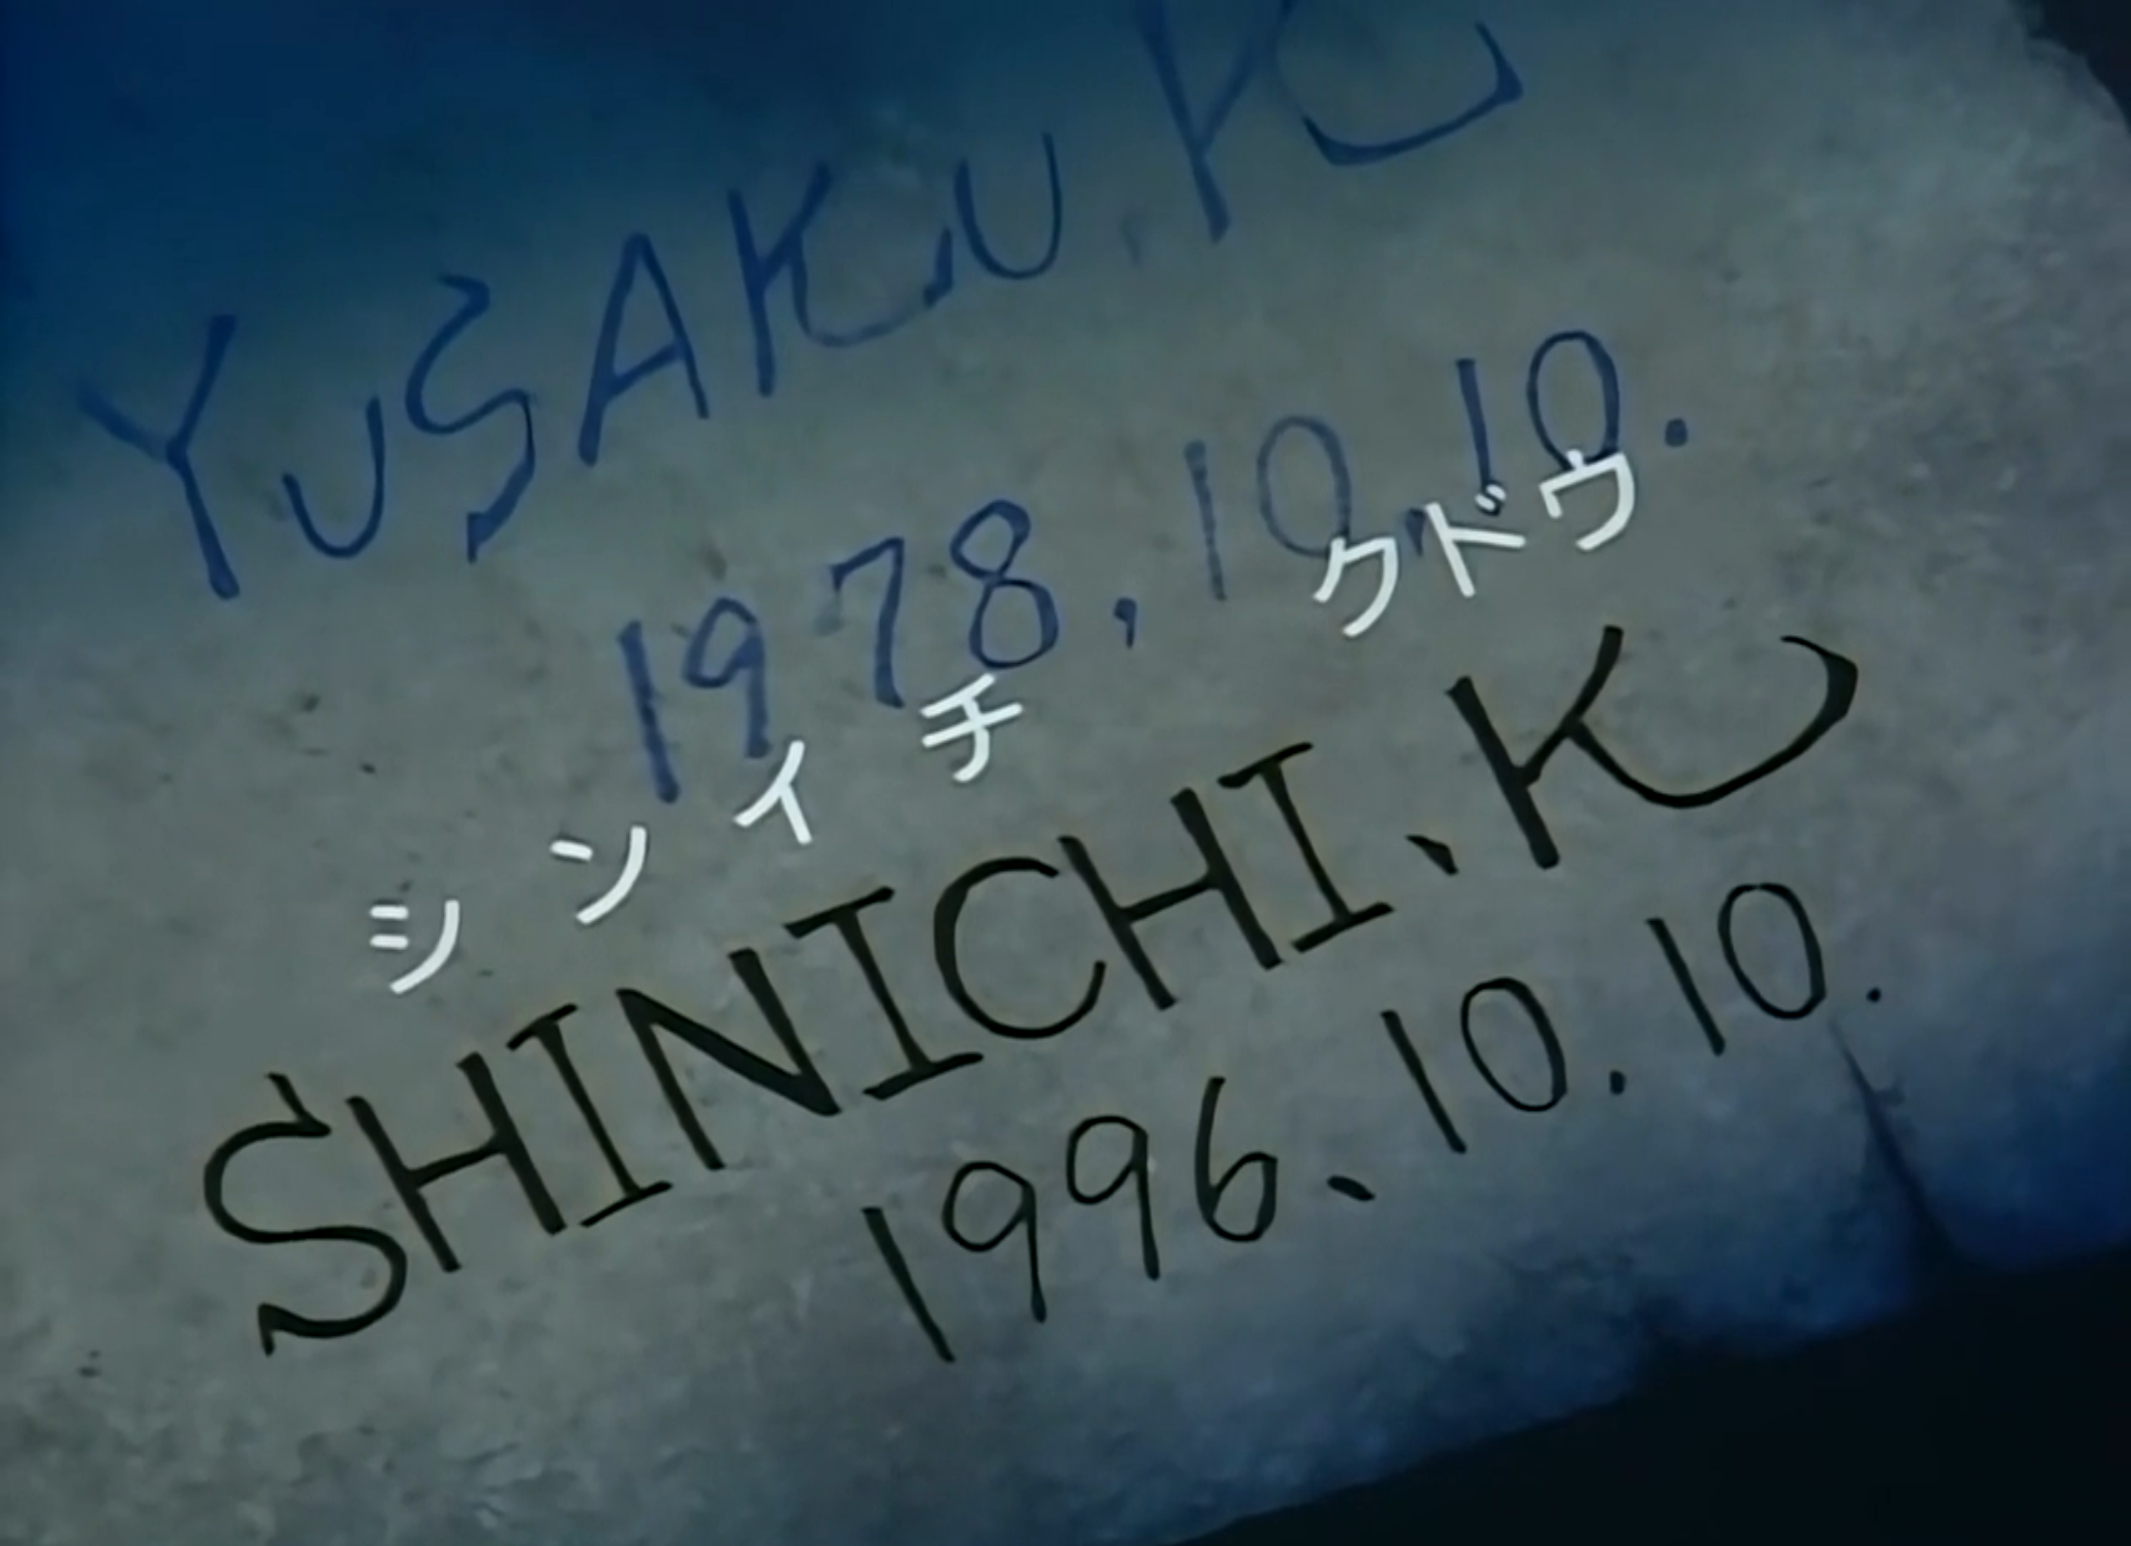 YUSAKU.K
1978.10.10.
シンイチ クドウ
SHINICHI.K
1996.10.10.